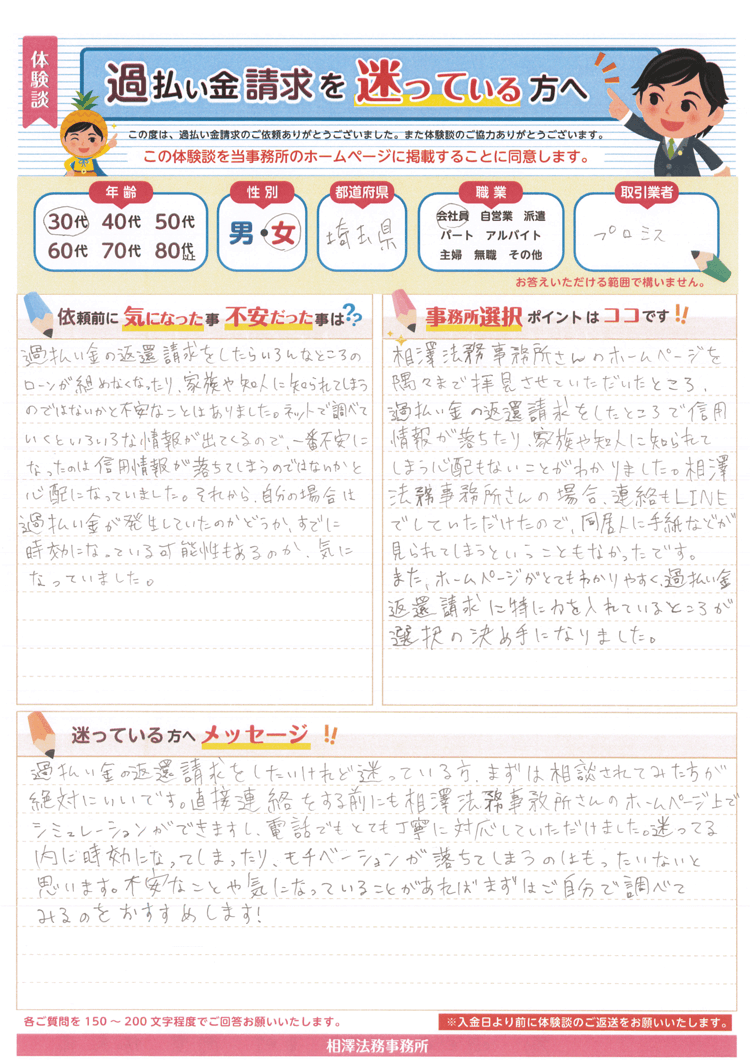 体験談
過払い金請求を迷っている方へ
この度は、過払い金請求のご依頼ありがとうございました。また体験談のご協力ありがとうございます。
この体験談を当事務所のホームページに掲載することに同意します。
年齢
30代 40代 50代
60代 70代 80代以上
性別
男・女
都道府県
埼玉県
職業
会社員 自営業 派遣
パート アルバイト
主婦 無職 その他
取引業者
プロミス
お答えいただける範囲で構いません。
依頼前に気になった事 不安だった事は??
過払い金の返還請求をしたらいろんなところの
ローンが組めなくなったり、家族や知人に知られてしまう
のではないかと不安なことはありました。ネットで調べて
いくといろいろな情報が出てくるので、一番不安に
なったのは信用情報が落ちてしまうのではないかと
心配になっていました。それから、自分の場合は
過払い金が発生していたのかどうか、すでに
時効になっている可能性もあるのか、気に
なっていました。
事務所選択 ポイントは ココです!!
相澤法務事務所さんのホームページを
隅々まで拝見させていただいたところ、
過払い金の返還請求をしたところで信用
情報が落ちたり、家族や知人に知られて
しまう心配もないことがわかりました。相澤
法務事務所さんの場合、連絡もLINE
でしていただけたので、同居人に手紙などが
見られてしまうということもなかったです。
また、ホームページがとてもわかりやすく、過払い金
返還請求に特に力を入れているところが
選択の決め手になりました。
迷っている方へ メッセージ!!
過払い金の返還請求をしたいけれど迷っている方、まずは相談されてみた方が
絶対にいいです。直接連絡をする前にも相澤法務事務所さんのホームページ上で
シミュレーションができますし、電話でもとても丁寧に対応していただけました。迷ってる
内に時効になってしまったり、モチベーションが落ちてしまうのはもったいないと
思います。不安なことや気になっていることがあればまずはご自分で調べて
みるのをおすすめします!
各ご質問を150〜200文字程度でご回答お願いいたします。
※入金日より前に体験談のご返送をお願いいたします。
相澤法務事務所